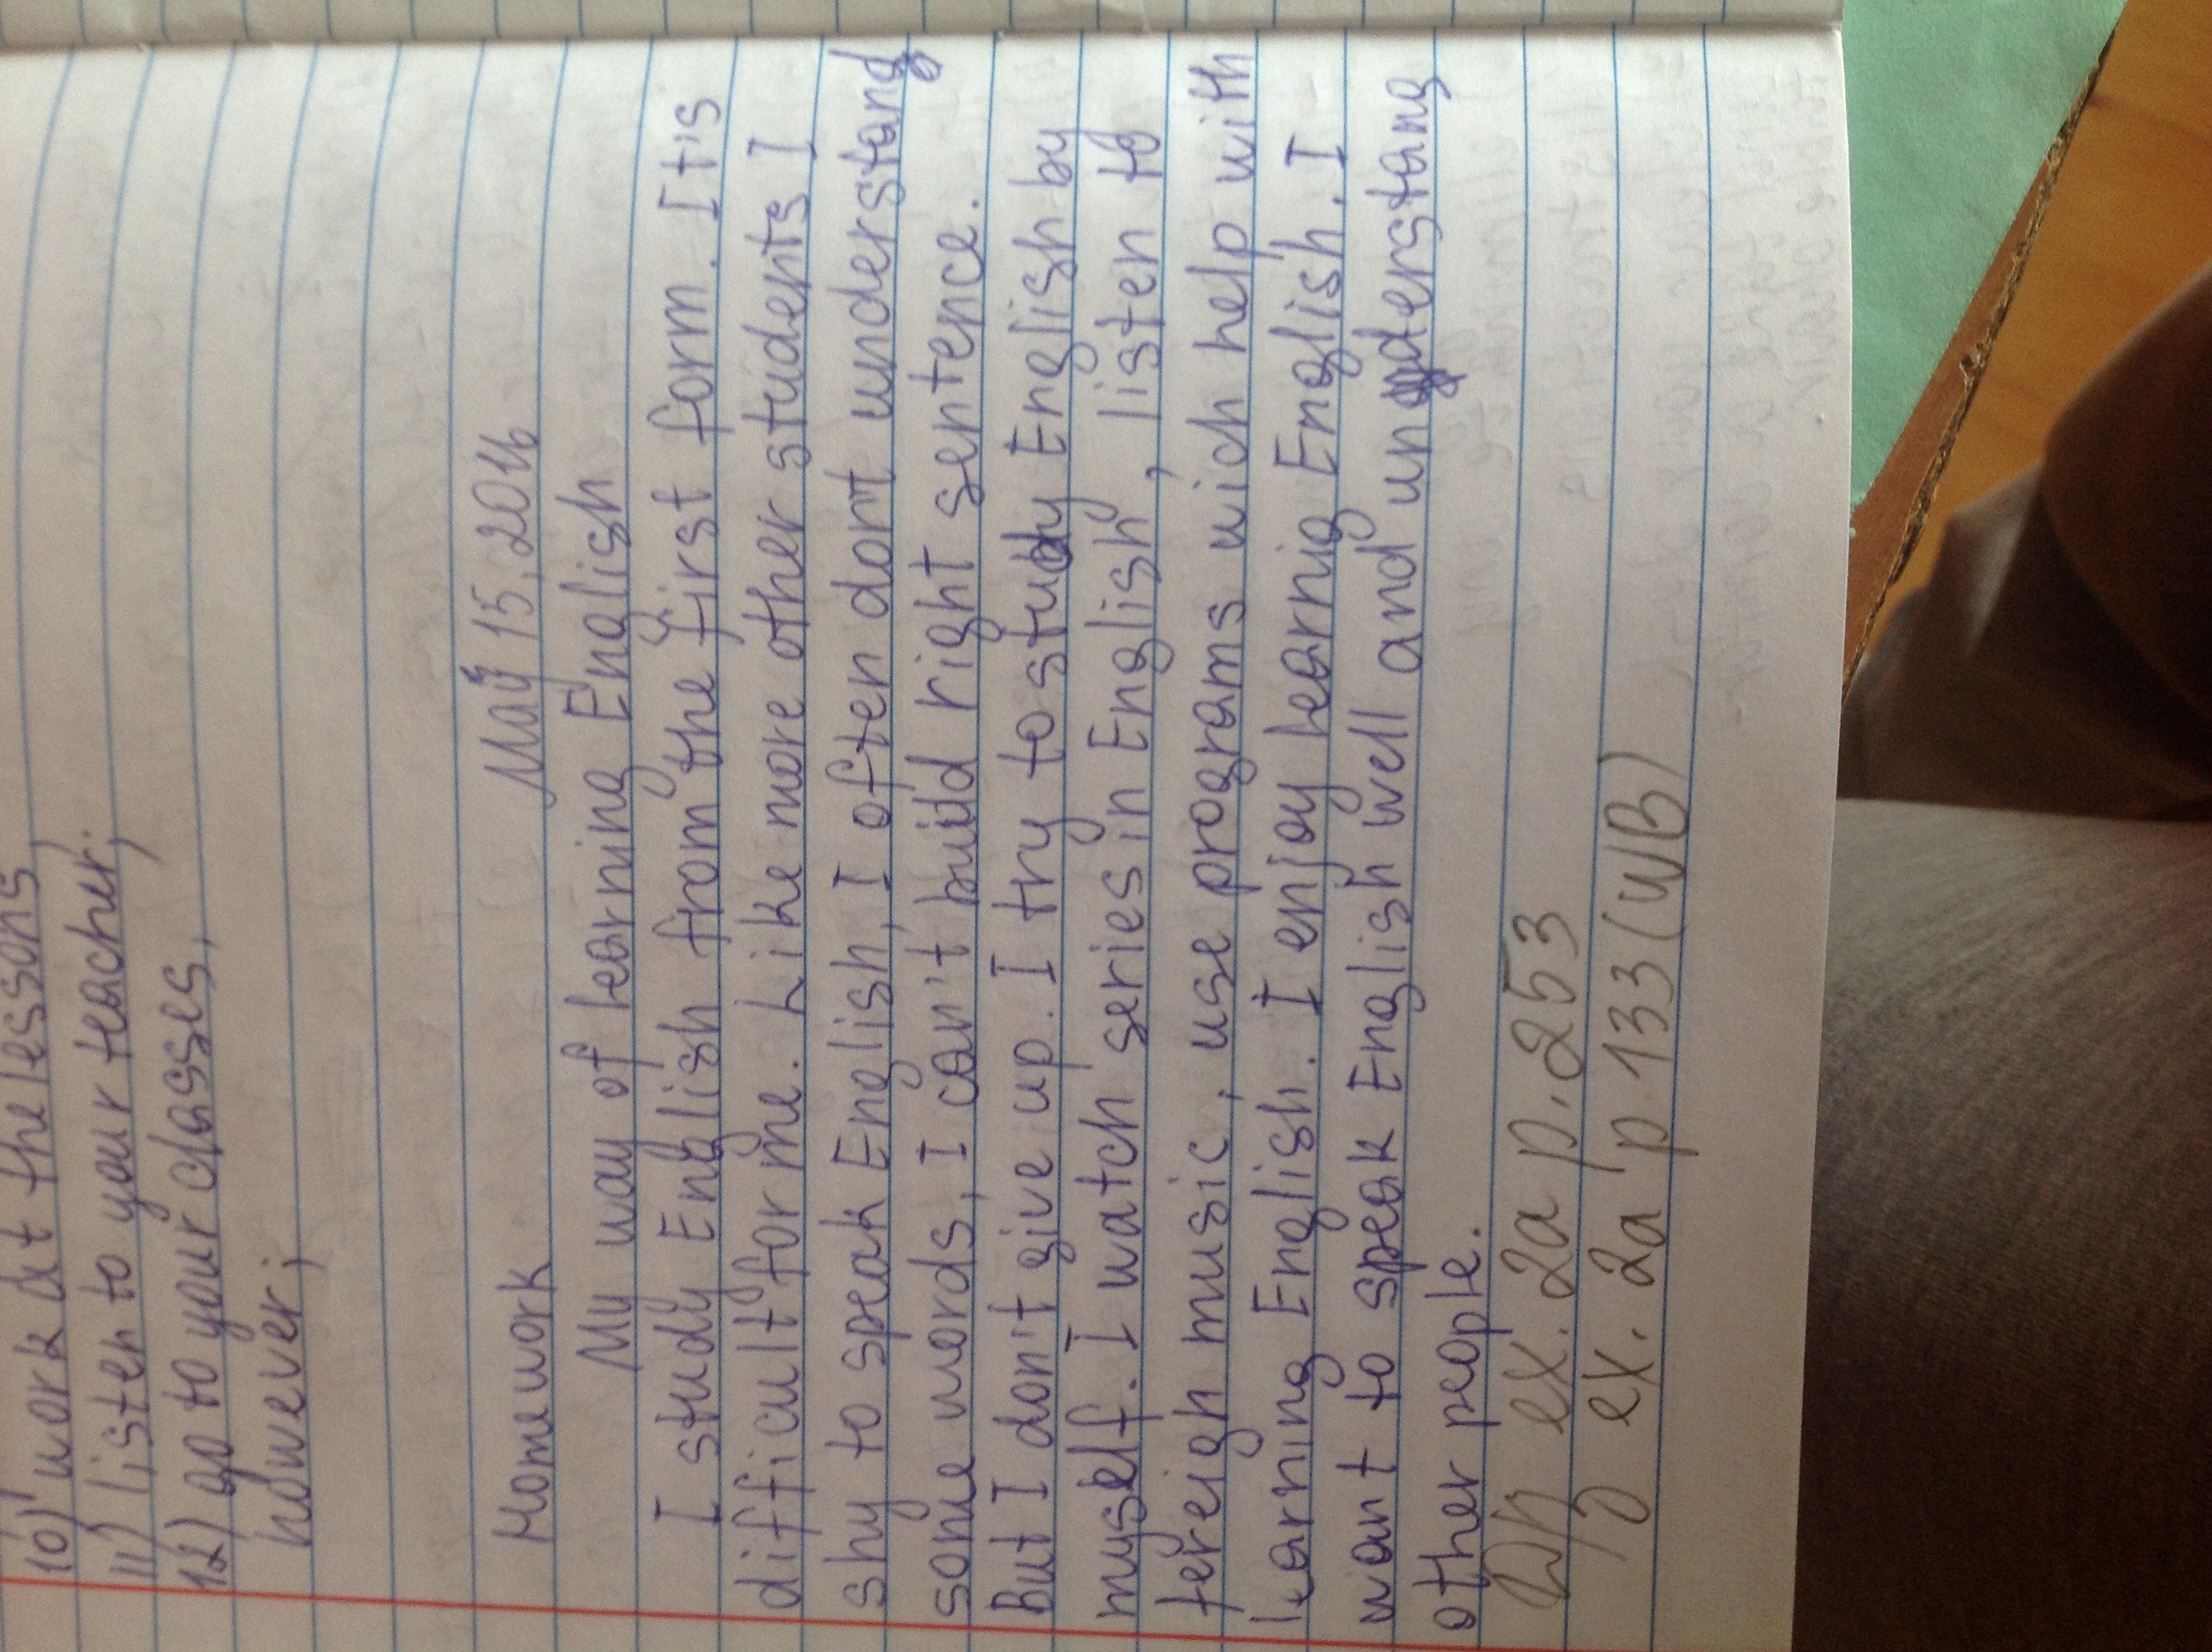 10) work at the lessons,
11) listen to your teacher;
12) go to your classes,
however;
May 15, 2016
Homework
My way of learning English
I study English from the first form. It's
difficult for me. Like more other students I
shy to speak English, I often don't understand
some words, I can't build right sentence.
But I don't give up. I try to study English by
myself. I watch series in English, listen to
fereigh music, use programs wich help with
learning English. I enjoy learnig English. I
want to speak English well and understang
other people.
ex. 2a p. 253
ex. 2a p 133 (WB)